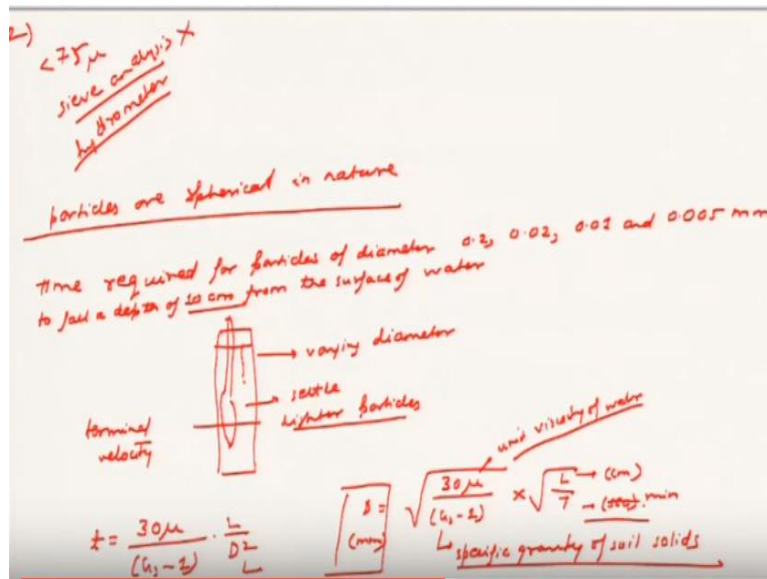 2)
<75 μ
sieve analysis X
hydrometer
particles are spherical in nature
time required for particles of diameter 0.2, 0.02, 0.01 and 0.005 mm
to fall a depth of 10 cm from the surface of water
→ varying diameter
→ settle
lighter particles
terminal
velocity
unit viscosity of water
D = √(30μ/(Gs-1)) × √(L/T) → (cm)
→ (sec) min
(mm)
↳ specific gravity of soil solids
t = 30μ/(Gs-1) · L/D2